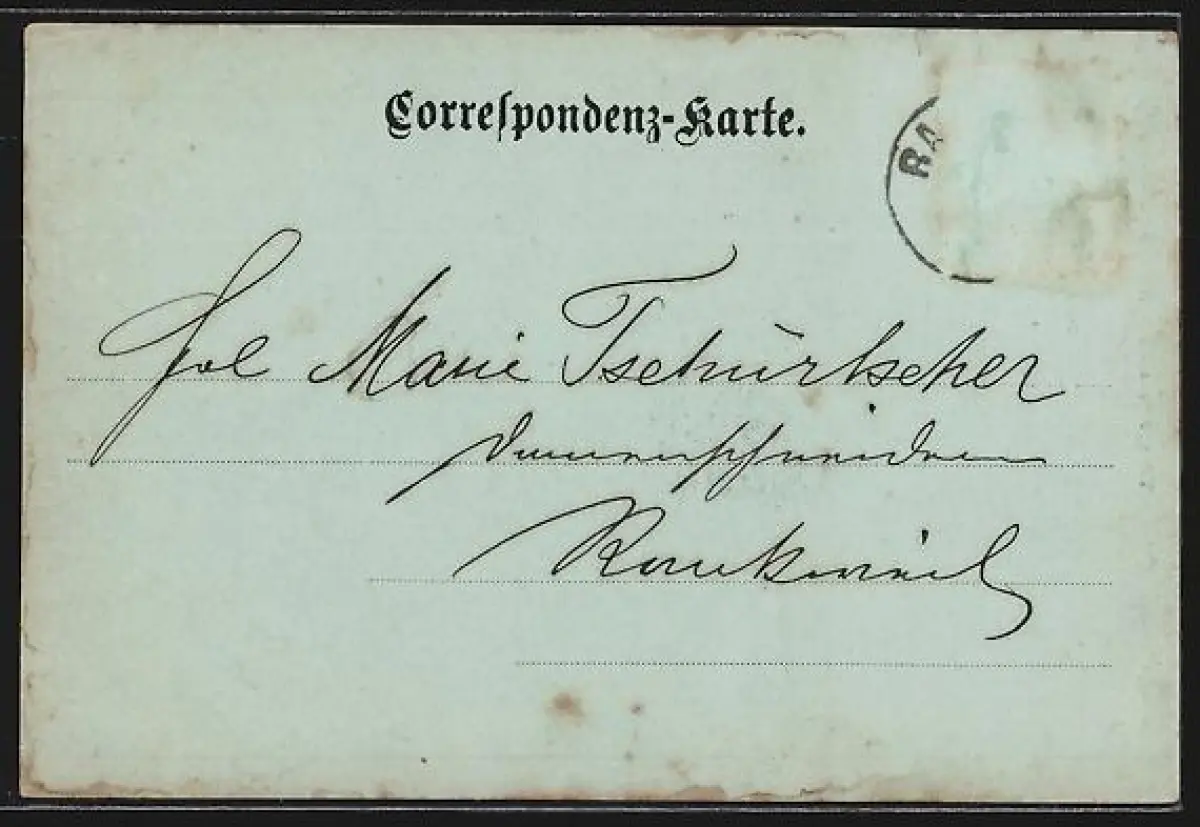 Correspondenz-Karte.
RA
Frl Marie Tschürtscher
Damenschneiderin
Rankweil